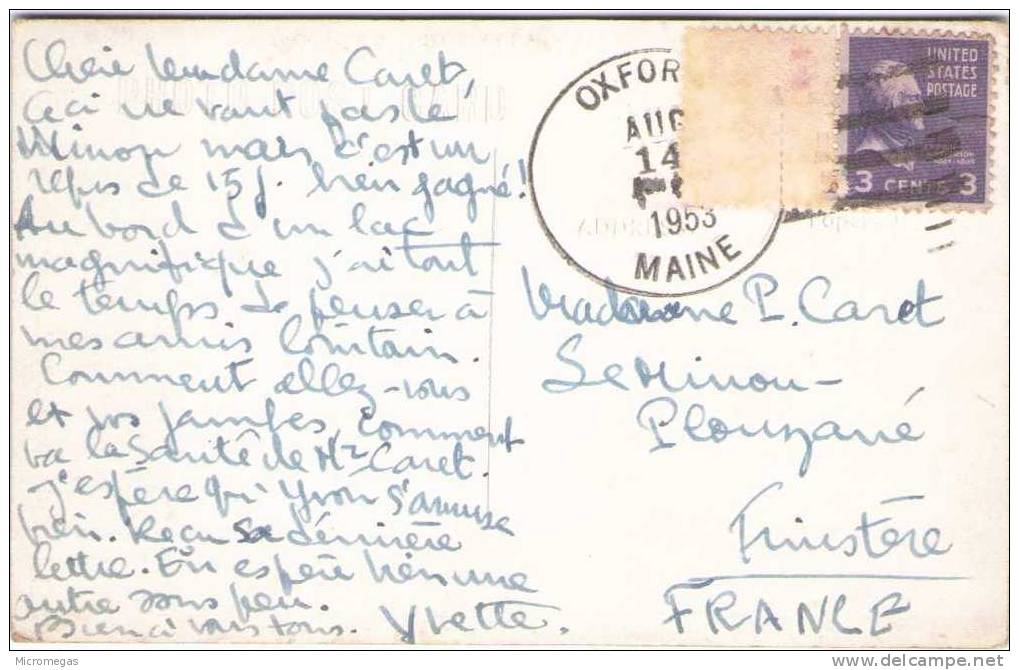 Chère Madame Caret,
Ceci ne vaut pas le
Minou mais c'est un
repos de 15 j. bien gagné!
Au bord d'un lac
magnifique j'ai tout
le temps de penser à
mes amis lointain.
Comment allez-vous
et vos jambes, comment
va la santé de Mr Caret.
J'espère qu'Yvon s'amuse
bien. Reçu sa dernière
lettre. En espère bien une
autre sous peu.
Bien à vous tous. Yvette.
OXFOR
AUG
14
1953
MAINE
UNITED
STATES
POSTAGE
3 CENTS 3
Madame P. Caret
Le Minou-
Plouzané
Finistère
FRANCE
Micromegas
delcampe.net